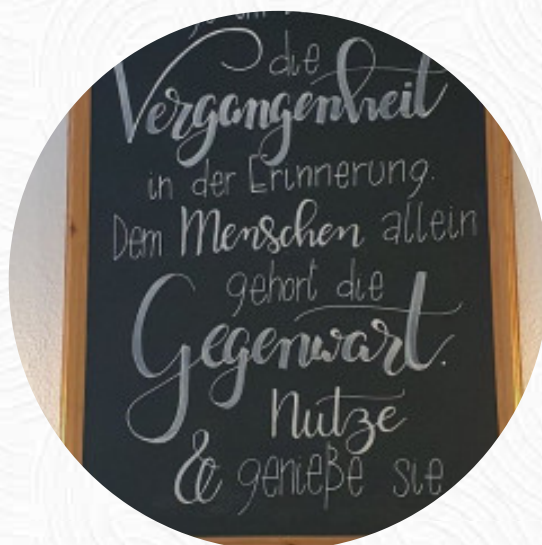 die
Vergangenheit
in der Erinnerung.
Dem Menschen allein
gehört die
Gegenwart.
Nutze
& genieße sie